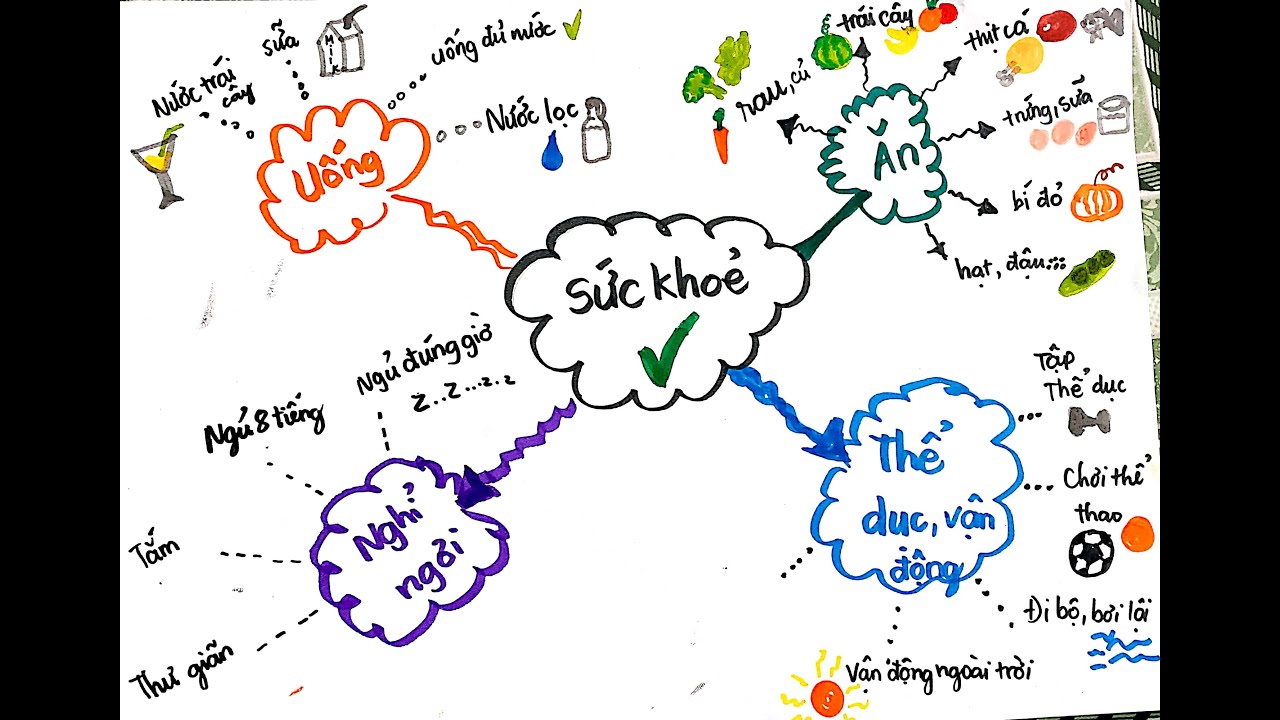 sức khoẻ
Uống
Nước trái
cây
sữa
M
K
uống đủ nước
Nước lọc
Ăn
rau, củ
trái cây
thịt cá
trứng, sữa
bí đỏ
hạt, đậu...
Nghỉ
ngỏi
Ngủ đúng giờ
z..z...z.z
Ngủ 8 tiếng
Tắm
Thư giãn
Thể
dục, vận
động
Tập
Thể dục
Chơi thể
thao
Đi bộ, bơi lội
Vận động ngoài trời